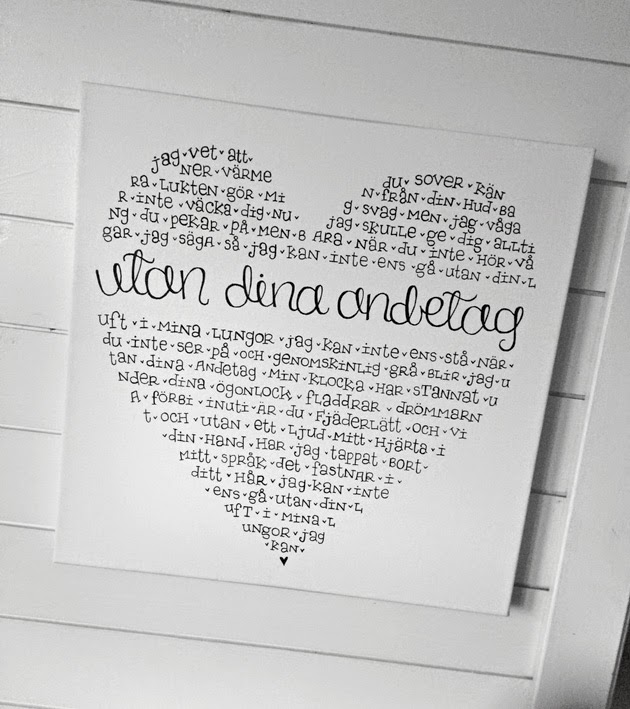 jag vet att du sover kän
NER värme N från din Hud BA
RA LUKTEN gör Mi g svag MEN jag våga
R inte väcka dig NU jag skulle ge dig allti
Ng du pekar på MEN B ARA NÄR du inte HÖR vå
gar jag sägA så jag kan inte ens gå utan din L
utan dina andetag
uft i MiNA LUNgor jag kan inte ens stå NÄR
du inte ser på OCH genomskinlig grå BLiR jag u
tan dina Andetag Min klocka Har stannat u
Nder dina ögonlock fladdrar drömmarn
A förbi inuti ÄR du Fjäderlätt OCH vi
t OCH utan ett Ljud Mitt Hjärta i
din HaNd HAR jag tappat BORT
Mitt språk det fastNAR i
ditt HåR jag kan inte
ens gå utan din L
uft i MiNA L
ungor jag
kan